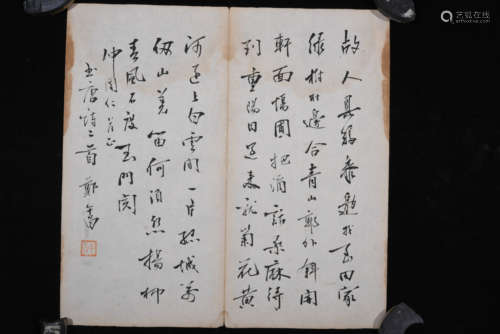 故人具雞黍邀我至田家
綠樹村邊合青山郭外斜開
軒面場圃把酒話桑麻待
到重陽日還来就菊花黄
河遠上白雲間一片孤城萬
仞山羌笛何須怨楊柳
春風不度玉門関
仲周仁兄正
書唐詩二首 鄭
艺狐在线
artfoxlive.com